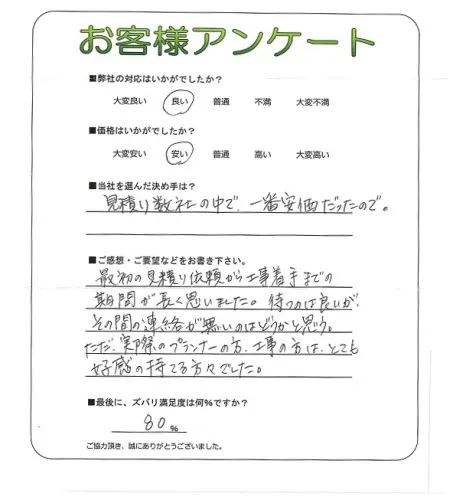 お客様アンケート
■弊社の対応はいかがでしたか？
大変良い 良い 普通 不満 大変不満
■価格はいかがでしたか？
大変安い 安い 普通 高い 大変高い
■当社を選んだ決め手は？
見積り数社の中で、一番安価だったので。
■ご感想・ご要望などをお書き下さい。
最初の見積り依頼から工事着手までの
期間が長く思いました。待つのは良いが、
その間の連絡が無いのはどうかと思う。
ただ、実際のプランナーの方、工事の方は、とても
好感の持てる方々でした。
■最後に、ズバリ満足度は何%ですか？
80%
ご協力頂き、誠にありがとうございました。